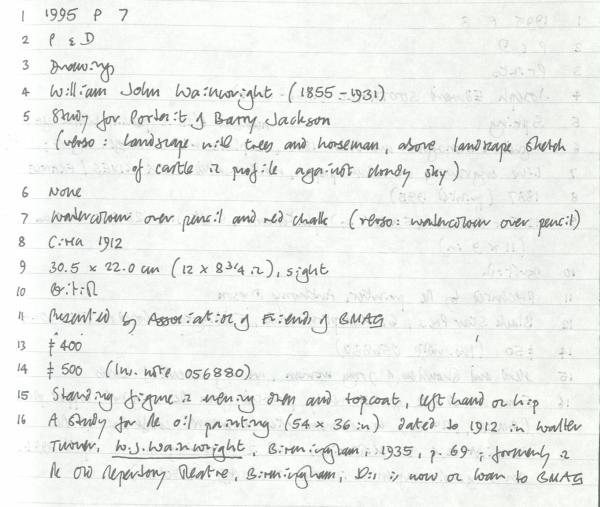 1 1995 P 7
2 P & D
3 Drawings
4 William John Wainwright (1855-1931)
5 Study for Portrait of Barry Jackson
(verso: landscape with trees and horseman, above landscape sketch
of castle in profile against cloudy sky)
6 None
7 Watercolour over pencil and red chalk (verso: watercolour over pencil)
8 Circa 1912
9 30.5 x 22.0 cm (12 x 8 3/4 in), sight
10 British
11 Presented by Association of Friends of BMAG
13 £400
14 £500 (Inv. note 056880)
15 Standing figure in evening dress and topcoat, left hand on hip
16 A study for the oil painting (54 x 36 in) dated to 1912 in Walter
Turner, W.J. Wainwright, Birmingham, 1935, p. 69; formerly in
the Old Repertory Theatre, Birmingham, is now on loan to BMAG